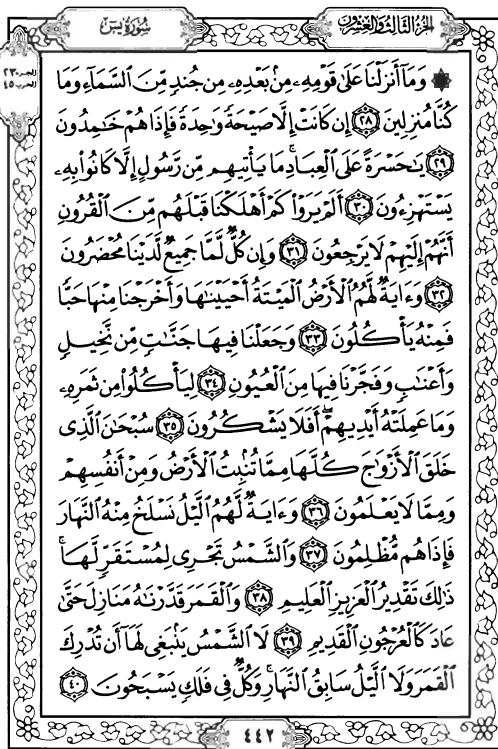 سُورَةُ يسٓ
الجُزْءُ الثَّالِثُ وَالعِشْرُونَ
الجزء ٢٣
الحزب ٤٥
۞ وَمَآ أَنزَلْنَا عَلَىٰ قَوْمِهِۦ مِنۢ بَعْدِهِۦ مِن جُندٍ مِّنَ ٱلسَّمَآءِ وَمَا
كُنَّا مُنزِلِينَ ٢٨ إِن كَانَتْ إِلَّا صَيْحَةً وَٰحِدَةً فَإِذَا هُمْ خَٰمِدُونَ
٢٩ يَٰحَسْرَةً عَلَى ٱلْعِبَادِۚ مَا يَأْتِيهِم مِّن رَّسُولٍ إِلَّا كَانُوا۟ بِهِۦ
يَسْتَهْزِءُونَ ٣٠ أَلَمْ يَرَوْا۟ كَمْ أَهْلَكْنَا قَبْلَهُم مِّنَ ٱلْقُرُونِ
أَنَّهُمْ إِلَيْهِمْ لَا يَرْجِعُونَ ٣١ وَإِن كُلٌّ لَّمَّا جَمِيعٌ لَّدَيْنَا مُحْضَرُونَ
٣٢ وَءَايَةٌ لَّهُمُ ٱلْأَرْضُ ٱلْمَيْتَةُ أَحْيَيْنَٰهَا وَأَخْرَجْنَا مِنْهَا حَبًّا
فَمِنْهُ يَأْكُلُونَ ٣٣ وَجَعَلْنَا فِيهَا جَنَّٰتٍ مِّن نَّخِيلٍ
وَأَعْنَٰبٍ وَفَجَّرْنَا فِيهَا مِنَ ٱلْعُيُونِ ٣٤ لِيَأْكُلُوا۟ مِن ثَمَرِهِۦ
وَمَا عَمِلَتْهُ أَيْدِيهِمْۖ أَفَلَا يَشْكُرُونَ ٣٥ سُبْحَٰنَ ٱلَّذِى
خَلَقَ ٱلْأَزْوَٰجَ كُلَّهَا مِمَّا تُنۢبِتُ ٱلْأَرْضُ وَمِنْ أَنفُسِهِمْ
وَمِمَّا لَا يَعْلَمُونَ ٣٦ وَءَايَةٌ لَّهُمُ ٱلَّيْلُ نَسْلَخُ مِنْهُ ٱلنَّهَارَ
فَإِذَا هُم مُّظْلِمُونَ ٣٧ وَٱلشَّمْسُ تَجْرِى لِمُسْتَقَرٍّ لَّهَاۚ
ذَٰلِكَ تَقْدِيرُ ٱلْعَزِيزِ ٱلْعَلِيمِ ٣٨ وَٱلْقَمَرَ قَدَّرْنَٰهُ مَنَازِلَ حَتَّىٰ
عَادَ كَٱلْعُرْجُونِ ٱلْقَدِيمِ ٣٩ لَا ٱلشَّمْسُ يَنۢبَغِى لَهَآ أَن تُدْرِكَ
ٱلْقَمَرَ وَلَا ٱلَّيْلُ سَابِقُ ٱلنَّهَارِۚ وَكُلٌّ فِى فَلَكٍ يَسْبَحُونَ ٤٠
٤٤٢